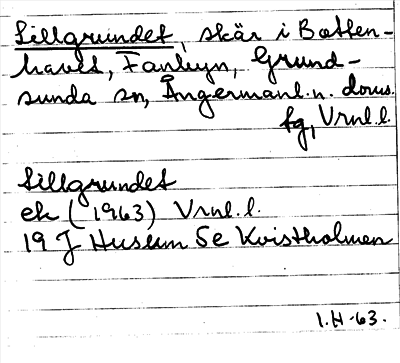 Sillgrundet, skär i Botten-
havet, Fanbyn, Grund-
sunda sn, Ångermanl. n. doms.
fg, Vrnl. l.
Sillgrundet
ek (1963) Vrnl. l.
19 J Husum Se Kvistholmen
I. H -63.